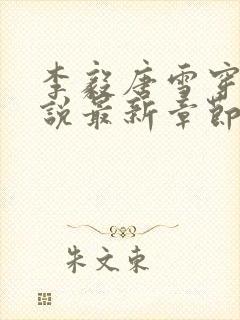 李毅唐雪穿
說最新章節
朱文東